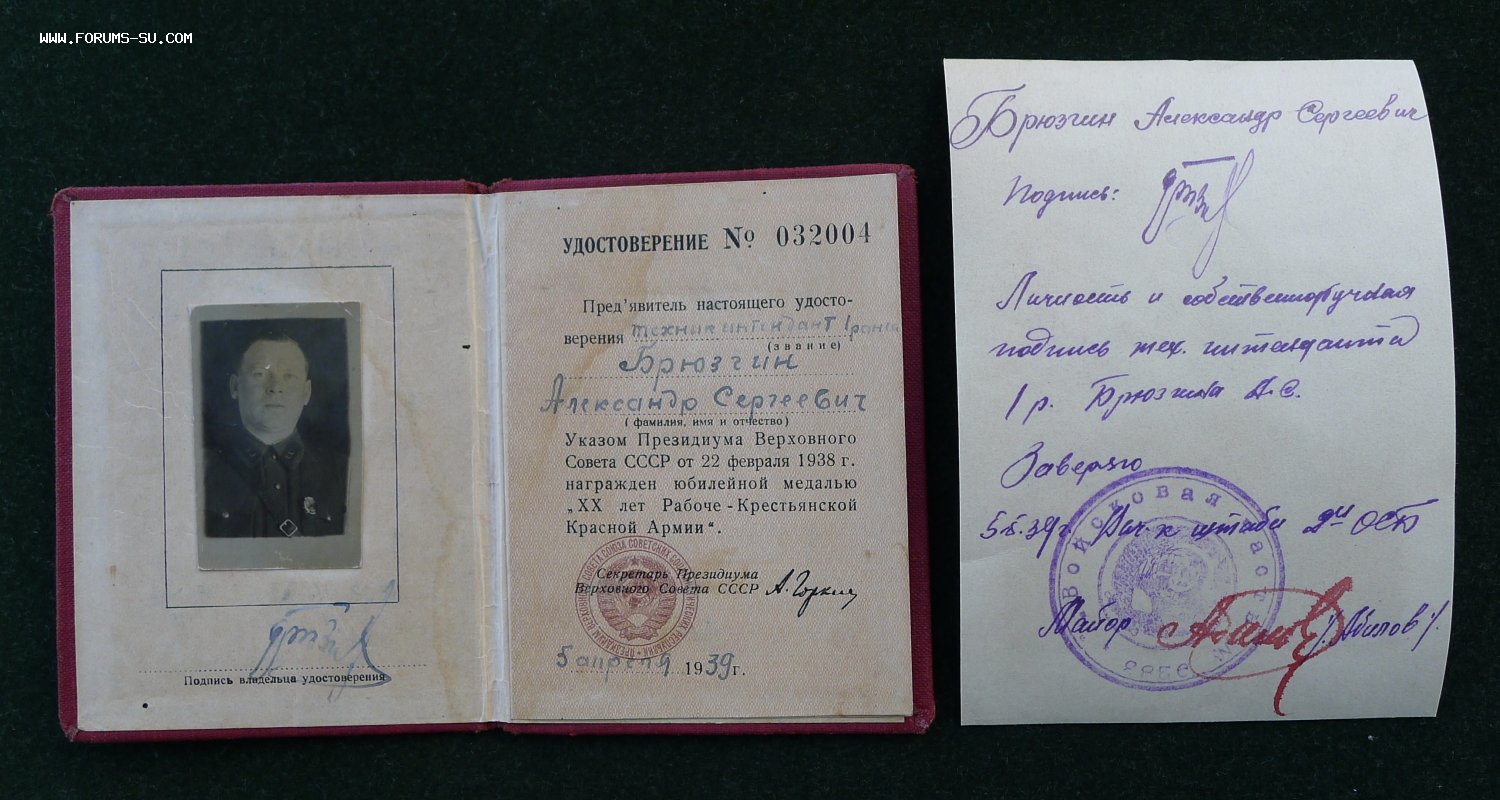 WWW.FORUMS-SU.COM
Подпись владельца удостоверения
УДОСТОВЕРЕНИЕ № 032004
Пред'явитель настоящего удосто-
верения техник интендант 1 ранга
(звание)
Брюзгин
Александр Сергеевич
(фамилия, имя и отчество)
Указом Президиума Верховного
Совета СССР от 22 февраля 1938 г.
награжден юбилейной медалью
„XX лет Рабоче-Крестьянской
Красной Армии“.
Секретарь Президиума
Верховного Совета СССР А. Горкин
5 апреля 1939 г.
Брюзгин Александр Сергеевич
Подпись:
Личность и собственноручная
подпись тех. интенданта
1 р. Брюзгина А.С.
Заверяю
Нач-к штаба 2й ОСБ
Майор /Абилов/
Войсковая часть